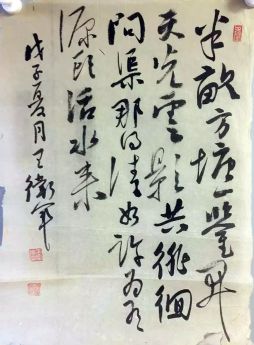 半畝方塘一鑒开
天光雲影共徘徊
问渠那得清如許為有
源頭活水来
戊子夏月王衛軍